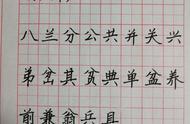 八兰分公共并关兴
弟岔其贫典单盆养
前兼翁兵具